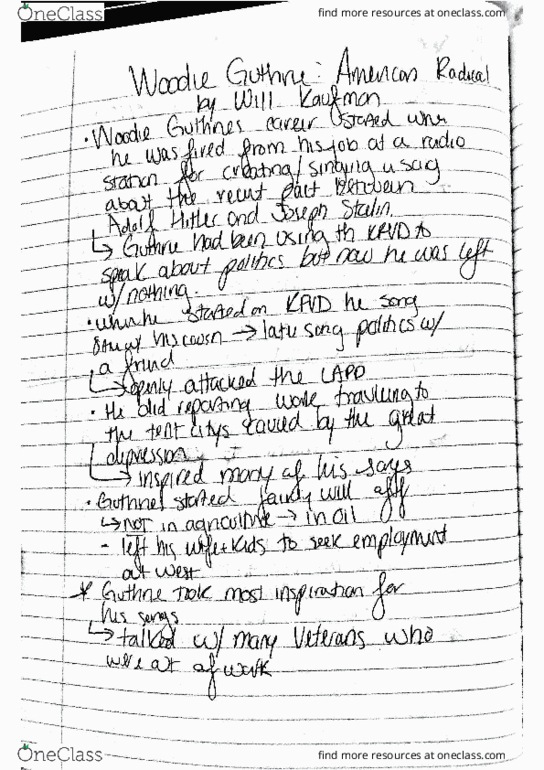 OneClass
find more resources at oneclass.com
Woodie Guthrie: American Radical
by Will Kaufman
• Woodie Guthries career started when
he was fired from his job at a radio
station for creating/singing a song
about the recent pact between
Adolf Hitler and Joseph Stalin.
↳ Guthrie had been using th KFVD to
speak about politics but now he was left
w/ nothing.
• when he started on KFVD he song
his cousin → later song politics w/
a friend
↳ openly attacked the LAPD
• He did reporting work, traveling to
the tent citys caused by the great
depression
↳ inspired many of his songs
• Guthries started fairly well off
↳ not in agriculture → in oil
- left his wife + kids to seek employment
out west
* Guthrie took most inspiration for
his songs
↳ talked w/ many Veterans who
were out of work
OneClass
find more resources at oneclass.com